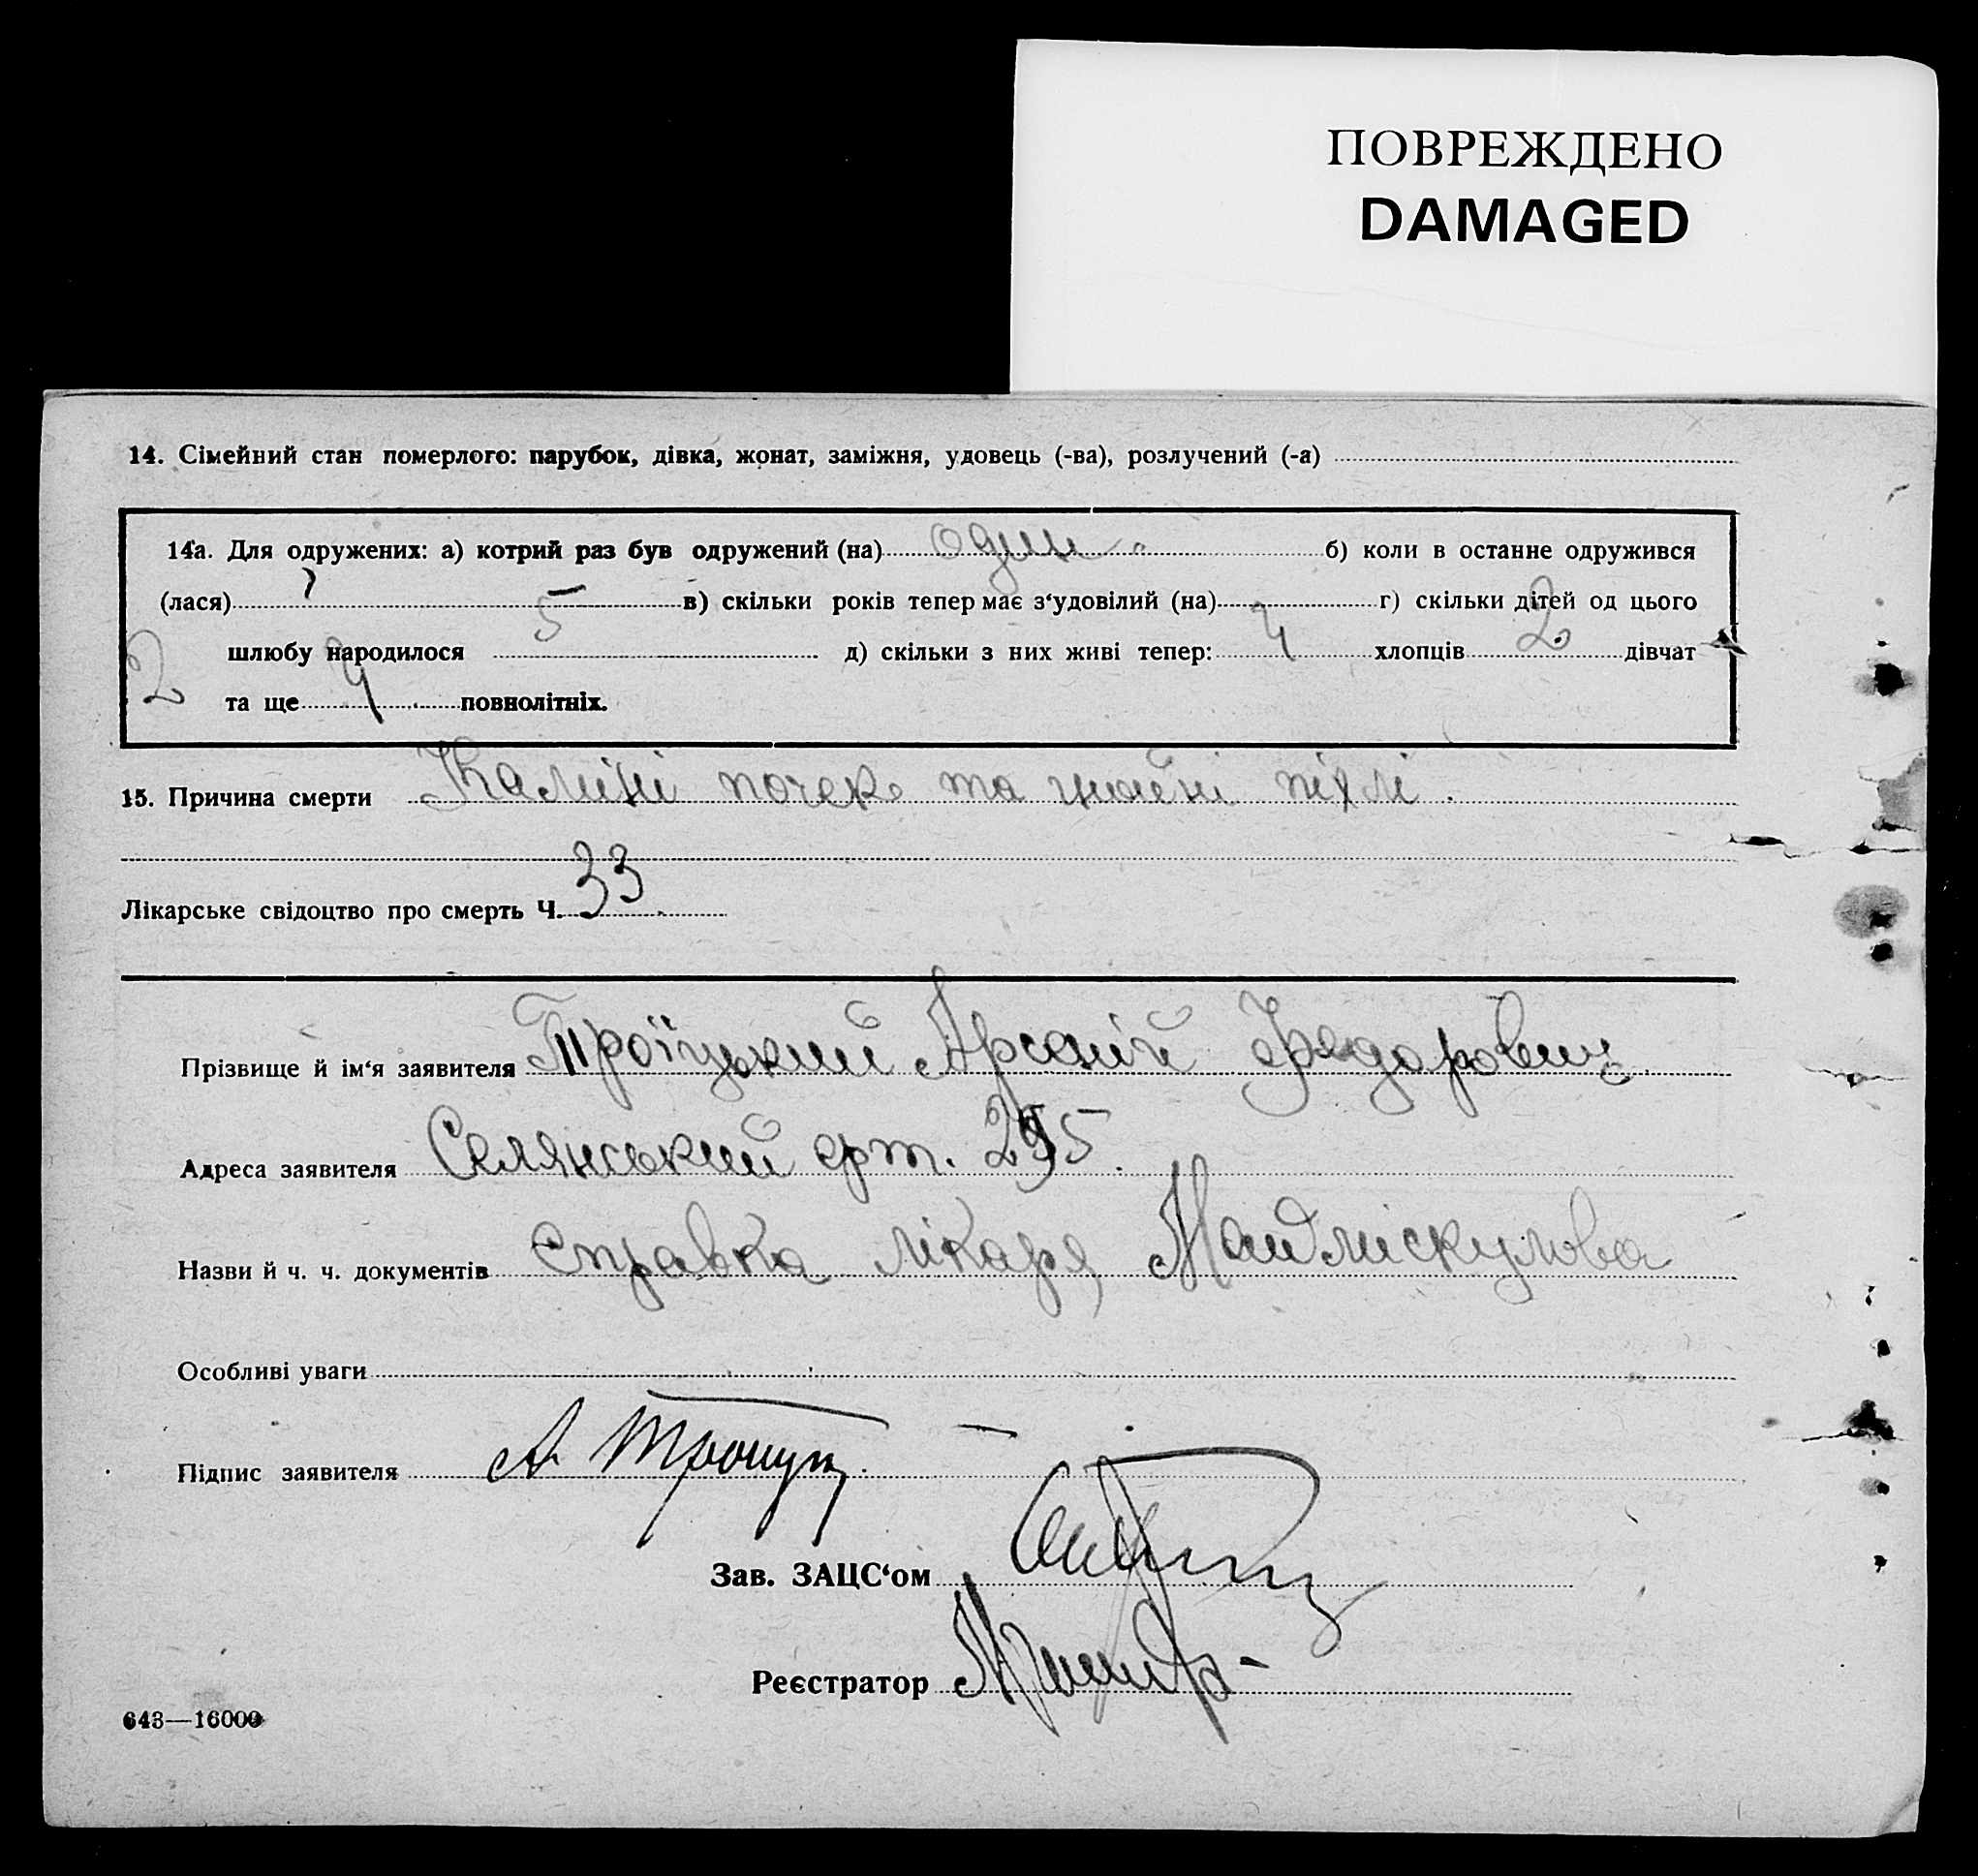 ПОВРЕЖДЕНО
DAMAGED
14. Сімейний стан померлого: парубок, дівка, жонат, заміжня, удовець (-ва), розлучений (-а)
14а. Для одружених: а) котрий раз був одружений (на) один б) коли в останнє одружився
(лася) ? в) скільки років тепер має з‘удовілий (на) г) скільки дітей од цього
шлюбу народилося 5 д) скільки з них живі тепер: хлопців 2 дівчат
2 та ще повнолітніх.
15. Причина смерти Каміні почек та гнойні
Лікарське свідоцтво про смерть Ч. 33
Прізвище й ім‘я заявителя Троїцький Арсеній Федорович
Адреса заявителя Селянський
Назви й ч. ч. документів справка лікаря
Особливі уваги
Підпис заявителя А Троиц
Зав. ЗАЦС‘ом
Реєстратор
643—16000